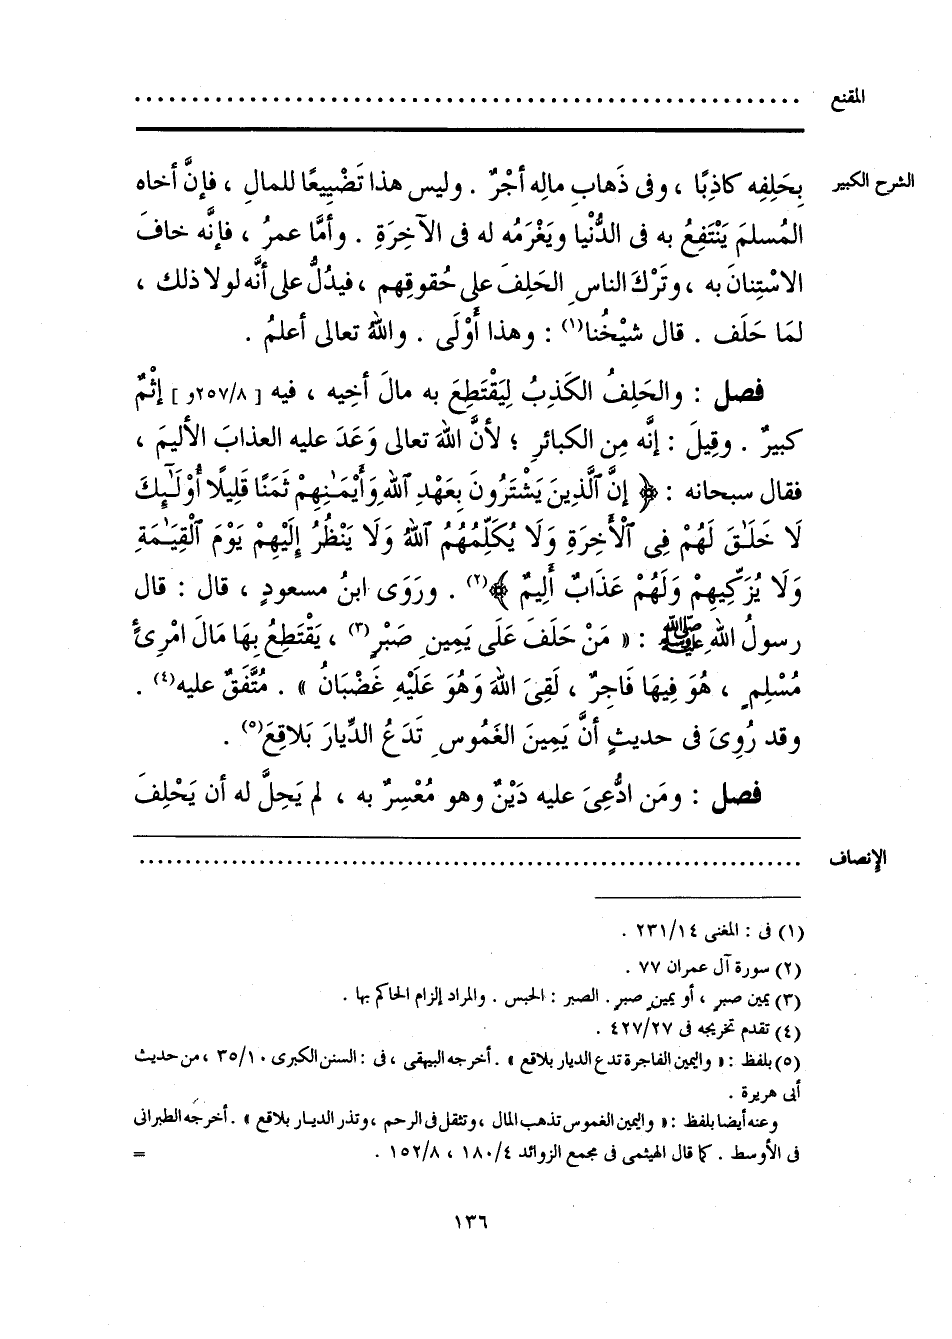 المقنع ........................................................
الشرح الكبير بِحَلِفِه كاذِبًا ، وفى ذَهابِ مالِه أجْرٌ . وليس هذا تَضْيِيعًا للمالِ ، فإنَّ أخاه
المُسلمَ يَنْتَفِعُ به فى الدُّنْيا ويَغْرَمُه له فى الآخِرَةِ . وأمَّا عمرُ ، فإنَّه خافَ
الاسْتِنانَ به ، وتَرْكَ الناسِ الحَلِفَ على حُقوقِهم ، فيدُلُّ على أنَّه لولا ذلك ،
لمَا حَلَف . قال شيْخُنا(١) : وهذا أَوْلَى . واللهُ تعالى أعلمُ .
فصل : والحَلِفُ الكَذِبُ لِيَقْتَطِعَ به مالَ أخِيه ، فيه [ ٢٥٧/٨و ] إثْمٌ
كبيرٌ . وقِيلَ : إنَّه مِن الكبائرِ ؛ لأنَّ اللهَ تعالى وَعَدَ عليه العذابَ الأليمَ ،
فقال سبحانه : ﴿ إِنَّ ٱلَّذِينَ يَشْتَرُونَ بِعَهْدِ ٱللهِ وَأَيْمَـٰنِهِمْ ثَمَنًا قَلِيلًا أُوْلَـٰٓئِكَ
لَا خَلَـٰقَ لَهُمْ فِى ٱلْأَخِرَةِ وَلَا يُكَلِّمُهُمُ ٱللهُ وَلَا يَنْظُرُ إِلَيْهِمْ يَوْمَ ٱلْقِيَـٰمَةِ
وَلَا يُزَكِّيهِمْ وَلَهُمْ عَذَابٌ أَلِيمٌ ﴾(٢) . ورَوَى ابنُ مسعودٍ ، قال : قال
رسولُ اللهِ ﷺ : « مَنْ حَلَفَ عَلَى يَمِينِ صَبْرٍ(٣) ، يَقْتَطِعُ بِهَا مَالَ امْرِئٍ
مُسْلِمٍ ، هُوَ فِيهَا فَاجِرٌ ، لَقِىَ اللهَ وَهُوَ عَلَيْهِ غَضْبَانُ » . مُتَّفَقٌ عليه(٤) .
وقد رُوِىَ فى حديثٍ أنَّ يَمِينَ الغَمُوسِ تَدَعُ الدِّيارَ بَلاقِعَ(٥) .
فصل : ومَن ادُّعِىَ عليه دَيْنٌ وهو مُعْسِرٌ به ، لم يَحِلَّ له أن يَحْلِفَ
الإنصاف ........................................................
(١) فى : المغنى ٢٣١/١٤ .
(٢) سورة آل عمران ٧٧ .
(٣) يمين صبرٍ ، أو يمينٍ صبرٍ . الصبر : الحبس . والمراد إلزام الحاكم بها .
(٤) تقدم تخريجه فى ٤٢٧/٢٧ .
(٥) بلفظ : « واليمين الفاجرة تدع الديار بلاقع » . أخرجه البيهقى ، فى : السنن الكبرى ٣٥/١٠ ، من حديث
أبى هريرة .
وعنه أيضا بلفظ : « واليمين الغموس تذهب المال ، وتثقل فى الرحم ، وتذر الديار بلاقع » . أخرجه الطبرانى
فى الأوسط . كما قال الهيثمى فى مجمع الزوائد ١٨٠/٤ ، ١٥٢/٨ . =
١٣٦